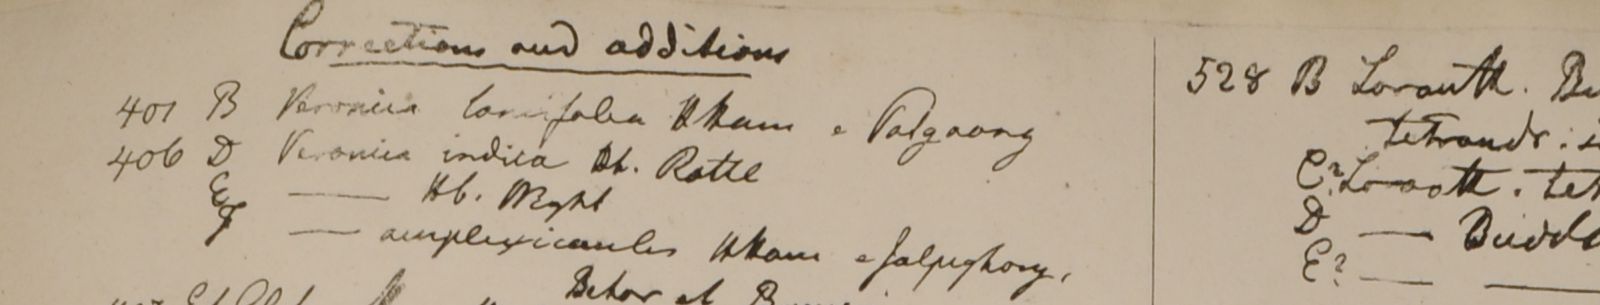 Corrections and additions
401 B Veronica lanifolia HHam e Palgaong
406 D Veronica indica Hb. Rottl
E — Hb. Wight
F — amplexicaules HHam e Jalpighory,
Behar et
528 B Loranth. Bu
tetrandr. i
C? Loranth. tet
D — Buddl
E? —